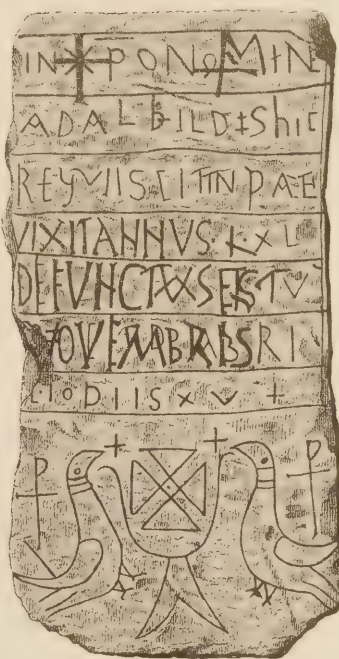 IN XPO NOMIN
ADALBILDIS hIC
REQVIISCIT IN PAE
VIXIT ANNVS XL
DEFVNCTVS EST V
NOVEMBRBS